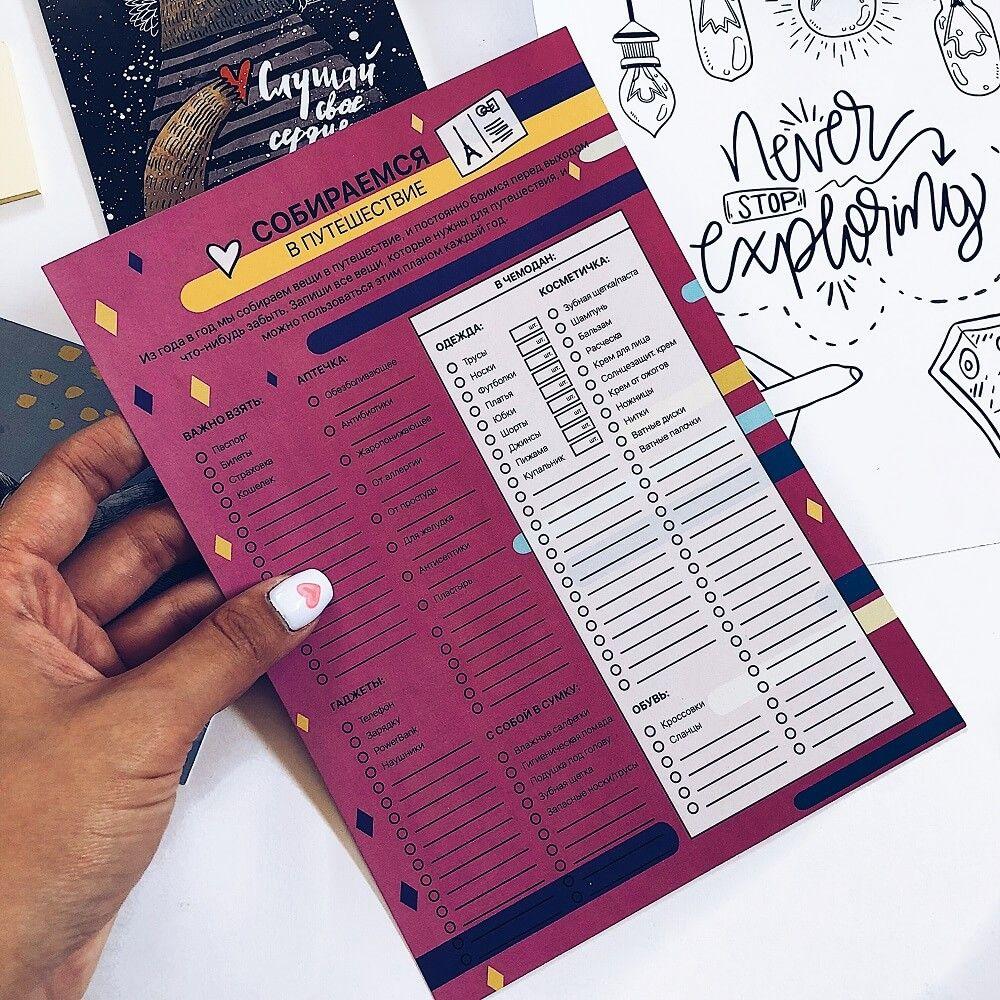 Слушай
своё
сердце
Never
STOP
exploring
СОБИРАЕМСЯ
В ПУТЕШЕСТВИЕ
Из года в год мы собираем вещи в путешествие, и постоянно боимся перед выходом
что-нибудь забыть. Запиши все вещи, которые нужны для путешествия, и
можно пользоваться этим планом каждый год.
ВАЖНО ВЗЯТЬ:
Паспорт
Билеты
Страховка
Кошелек
АПТЕЧКА:
Обезболивающее
Антибиотики
Жаропонижающее
От аллергии
От простуды
Для желудка
Антисептики
Пластырь
В ЧЕМОДАН:
ОДЕЖДА:
Трусы
шт.
Носки
шт.
Футболки
шт.
Платья
шт.
Юбки
шт.
Шорты
шт.
Джинсы
шт.
Пижама
шт.
Купальник
шт.
КОСМЕТИЧКА:
Зубная щетка/паста
Шампунь
Бальзам
Расческа
Крем для лица
Солнцезащит. крем
Крем от ожогов
Ножницы
Нитки
Ватные диски
Ватные палочки
ОБУВЬ:
Кроссовки
Сланцы
ГАДЖЕТЫ:
Телефон
Зарядку
PowerBank
Наушники
С СОБОЙ В СУМКУ:
Влажные салфетки
Гигиеническая помада
Подушка под голову
Зубная щетка
Запасные носки/трусы